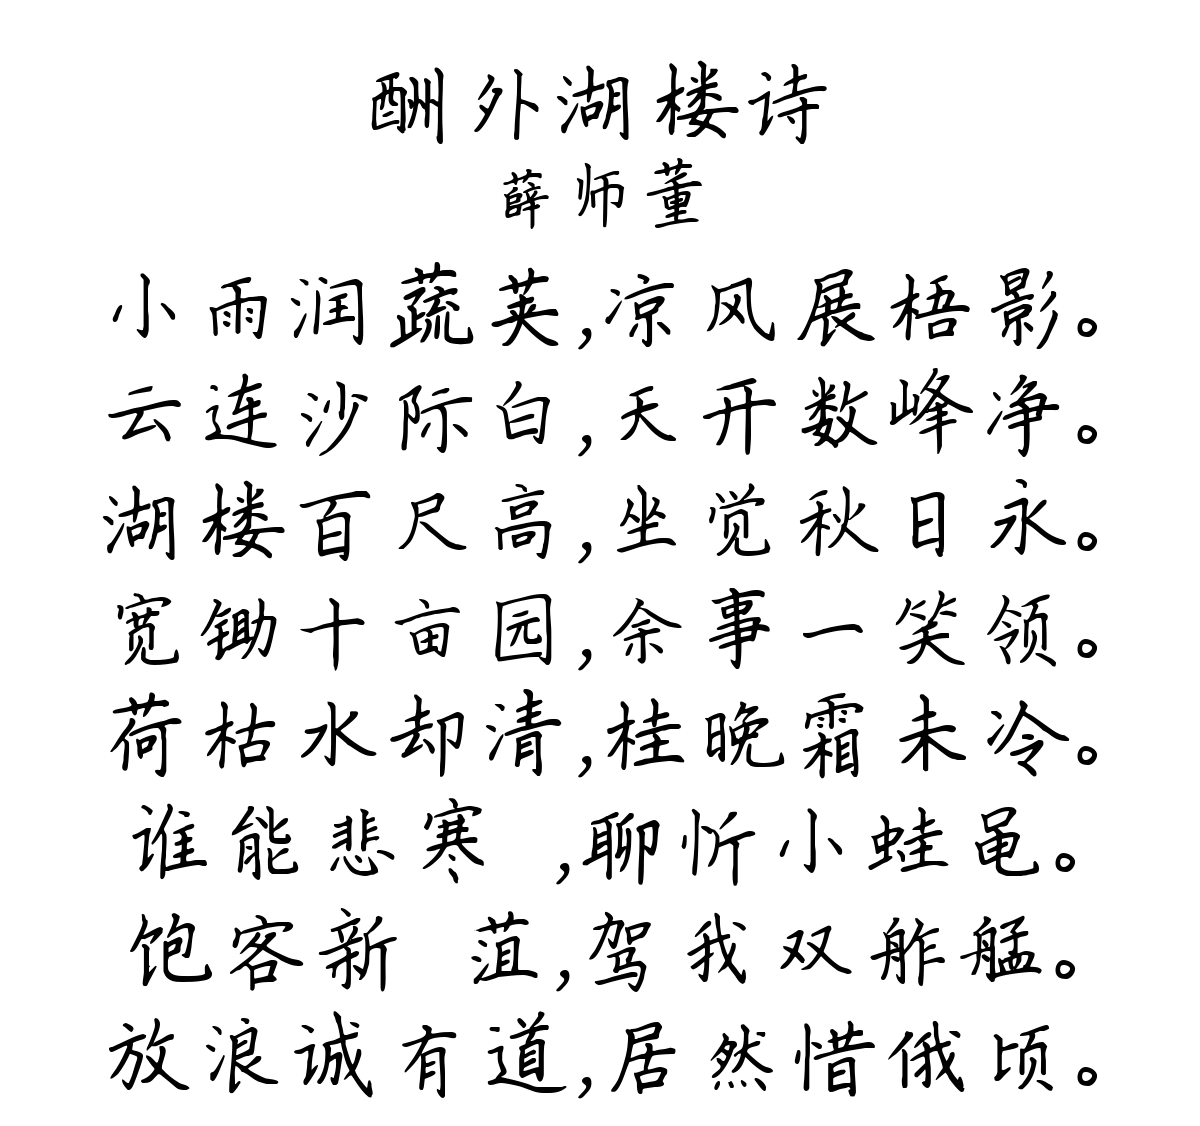 酬外湖楼诗
薛师董
小雨润蔬荚,凉风展梧影。
云连沙际白,天开数峰净。
湖楼百尺高,坐觉秋日永。
宽锄十亩园,余事一笑领。
荷枯水却清,桂晚霜未冷。
谁能悲寒 ,聊忻小蛙黾。
饱客新 菹,驾我双舴艋。
放浪诚有道,居然惜俄顷。